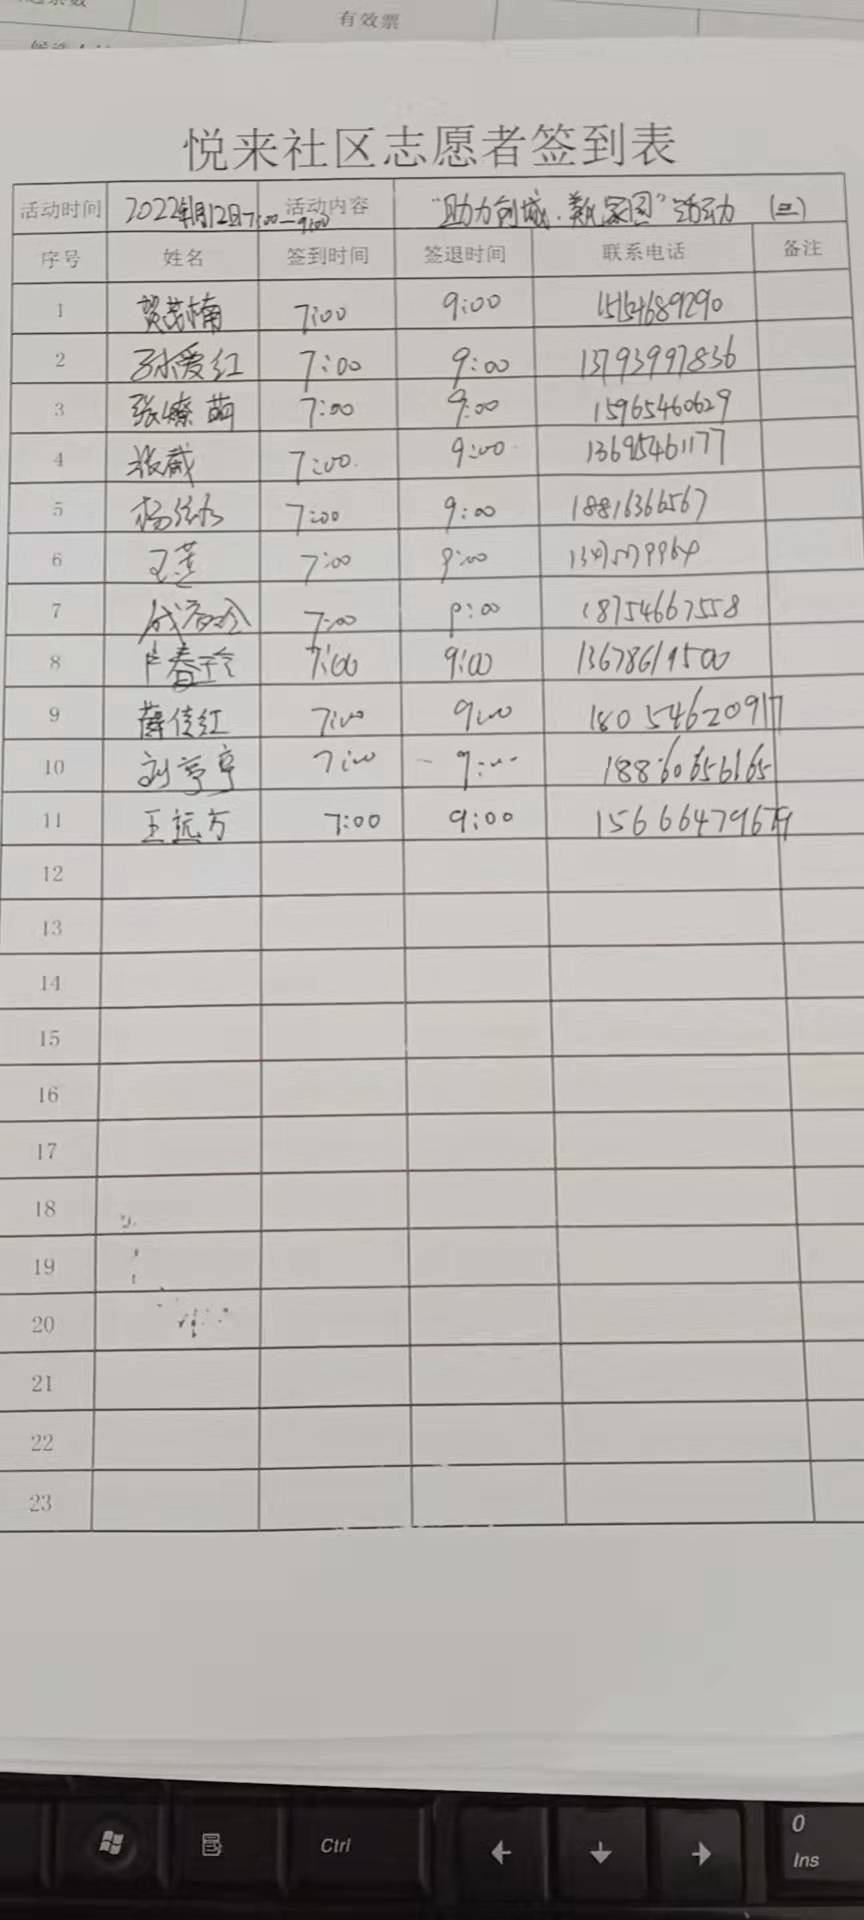 有效票
悦来社区志愿者签到表
活动时间 2022年1月12日7:00—9:00 活动内容 “助力创城·美化家园”活动 (三)
序号 姓名 签到时间 签退时间 联系电话 备注
1 贺茂楠 7:00 9:00 15154689290
2 孙爱红 7:00 9:00 13793997836
3 张燎萌 7:00 9:00 15965460629
4 张威 7:00 9:00 13695461177
5 7:00 9:00 18816366567
6 王莲 7:00 9:00
7 7:00 9:00 18754667558
8 卢春玲 7:00 9:00 13678619500
9 薛佳红 7:00 9:00 18054620917
10 刘亭亭 7:00 9:00 18860656165
11 王远方 7:00 9:00 15666479679
12
13
14
15
16
17
18
19
20
21
22
23
Ctrl
0
Ins